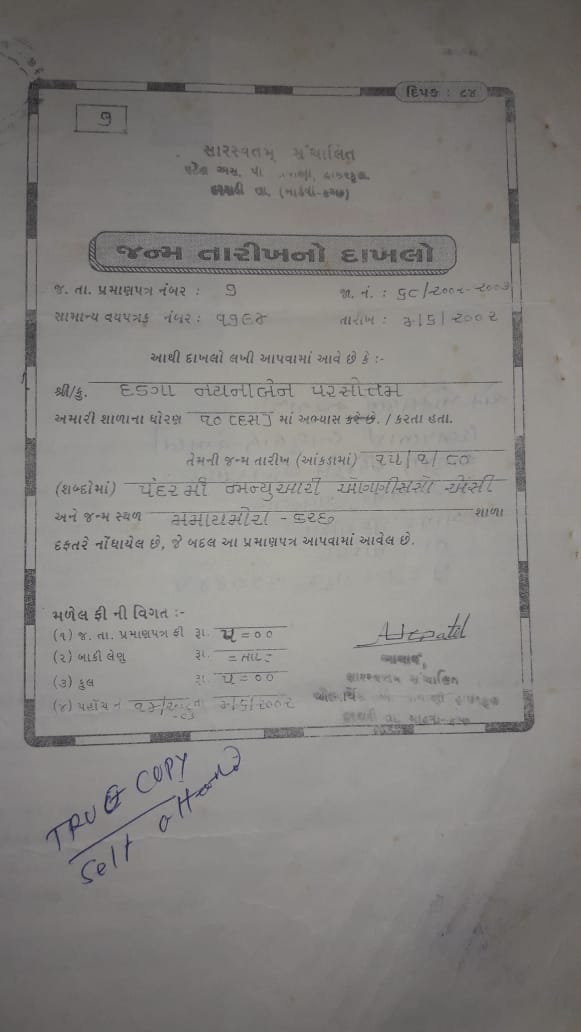 દિપક : ૮૪
૧
સારસ્વતમ્ સંચાલિત
જન્મ તારીખનો દાખલો
જ. તા. પ્રમાણપત્ર નંબર : ૧
જા. નં. : ૬૮/૨૦૦૨-૨૦૦૩
સામાન્ય વયપત્રક નંબર : ૧૧૯૪
તારીખ : ૪/૬/૨૦૦૨
આથી દાખલો લખી આપવામાં આવે છે કે :-
શ્રી/કુ. હડગા નયનાબેન પરસોતમ
અમારી શાળાના ધોરણ ૧૦ (દસ) માં અભ્યાસ કરે છે. / કરતા હતા.
તેમની જન્મ તારીખ (આંકડામાં) ૧૫/૧/૮૦
(શબ્દોમાં) પંદરમી જાન્યુઆરી ઓગણીસસો એંસી
અને જન્મ સ્થળ - કચ્છ શાળા
દફતરે નોંધાયેલ છે, જે બદલ આ પ્રમાણપત્ર આપવામાં આવેલ છે.
મળેલ ફી ની વિગત :-
(૧) જ. તા. પ્રમાણપત્ર ફી રૂા. ૫=૦૦
(૨) બાકી લેણુ રૂા.
(૩) કુલ રૂા. ૫=૦૦
(૪) પહોંચ નં તા ૪/૬/૨૦૦૨
આચાર્ય,
સારસ્વતમ્ સંચાલિત
TRUE COPY
Self